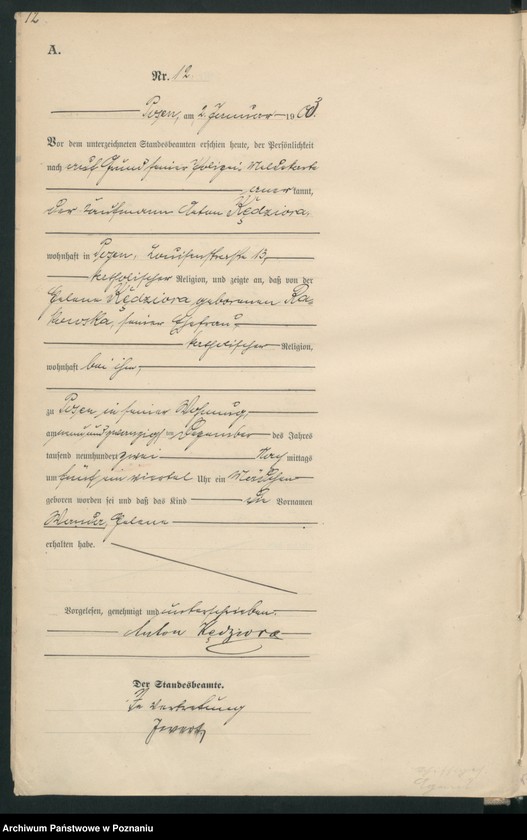 12
A.
Nr. 12
Posen, am 2. Januar 1903
Vor dem unterzeichneten Standesbeamten erschien heute, der Persönlichkeit
nach auf Grund seiner Polizei-Meldekarte
anerkannt,
der Kaufmann Anton Kędziora,
wohnhaft in Posen, Louisenstrasse 13,
katholischer Religion, und zeigte an, daß von der
Helena Kędziora, geborenen Ra-
kowska, seiner Ehefrau,
katholischer Religion,
wohnhaft bei ihm,
zu Posen, in seiner Wohnung,
am neunundzwanzigsten Dezember des Jahres
tausend neunhundert zwei Nachmittags
um fünf ein viertel Uhr ein Mädchen
geboren worden sei und daß das Kind die Vornamen
Wanda, Helena
erhalten habe.
Vorgelesen, genehmigt und unterschrieben.
Anton Kędziora
Der Standesbeamte.
In Vertretung
Archiwum Państwowe w Poznaniu